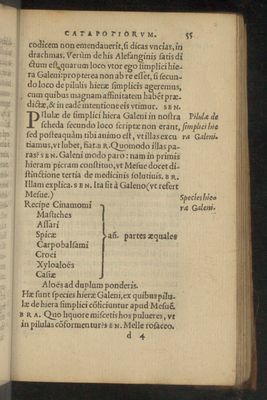 CATAPOTIORVM. 55
codicem non emendauerit, si dicas vncias, in
drachmas. Verùm de his Alesanginis satis di
ctum est, quarum loco vtor ego simplici hie-
ra Galeni: propterea non ab re esset, si secun-
do loco de pilulis hieræ simplicis ageremus,
cum quibus magnam affinitatem habēt præ-
dictæ, & in eadē intentione eis vtimur. SEN.
Pilulæ de simplici hiera Galeni in nostra
scheda secundo loco scriptæ non erant,
sed postea quàm tibi animo est, vt illas excu
tiamus, vt lubet, fiat. BR. Quomodo illas pa-
ras? SEN. Galeni modo paro: nam in primis
hieram picram constituo, vt Mesue docet di-
stinctione tertia de medicinis solutiuis. BR.
Illam explica. SEN. Ita sit à Galeno (vt refert
Mesue.)
Pilulæ de
simplici hie
ra Galeni.
Species hie
ra Galeni.
Recipe Cinamomi
Mastiches
Assari
Spicæ
Carpobalsami
Croci
Xyloaloës
Casiæ
añ. partes æquales
Aloës ad duplum ponderis.
Hæ sunt species hieræ Galeni, ex quibus pilu-
læ de hiera simplici cōficiuntur apud Mesuē.
BRA. Quo liquore misceris hos pulueres, vt
in pilulas cōformentur? SEN. Melle rosaceo.
d 4